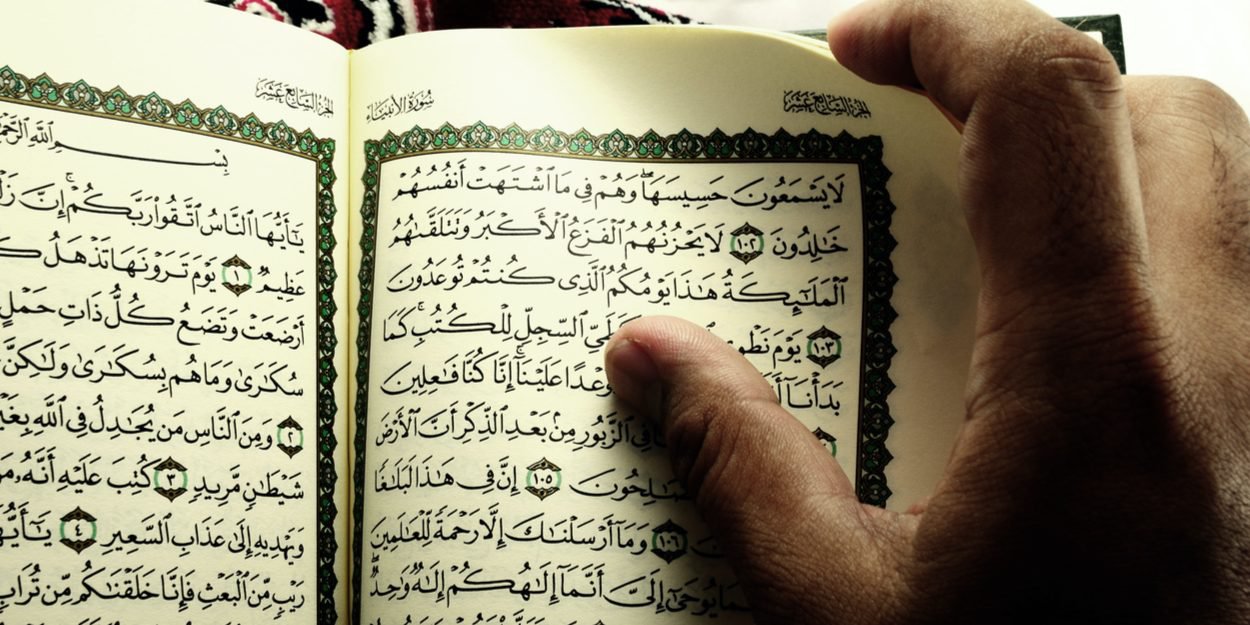 الجزء السابع عشر
سورة الأنبياء
لَا يَسْمَعُونَ حَسِيسَهَا ۖ وَهُمْ فِي مَا ٱشْتَهَتْ أَنفُسُهُمْ
خَٰلِدُونَ ١٠٢ لَا يَحْزُنُهُمُ ٱلْفَزَعُ ٱلْأَكْبَرُ وَتَتَلَقَّىٰهُمُ
ٱلْمَلَٰٓئِكَةُ هَٰذَا يَوْمُكُمُ ٱلَّذِي كُنتُمْ تُوعَدُونَ
١٠٣ يَوْمَ نَطْوِي ٱلسِّجِلِّ لِلْكُتُبِ ۚ كَمَا
بَدَأْنَآ وَعْدًا عَلَيْنَآ ۚ إِنَّا كُنَّا فَٰعِلِينَ
فِي ٱلزَّبُورِ مِنۢ بَعْدِ ٱلذِّكْرِ أَنَّ ٱلْأَرْضَ
١٠٥ إِنَّ فِي هَٰذَا لَبَلَٰغًا
١٠٦ وَمَآ أَرْسَلْنَٰكَ إِلَّا رَحْمَةً لِّلْعَٰلَمِينَ
يُوحَىٰٓ إِلَيَّ أَنَّمَآ إِلَٰهُكُمْ إِلَٰهٌ وَٰحِدٌ ۖ
الجزء السابع عشر
بِسْمِ ٱللَّهِ
يَٰٓأَيُّهَا ٱلنَّاسُ ٱتَّقُوا۟ رَبَّكُمْ ۚ إِنَّ
عَظِيمٌ ١ يَوْمَ تَرَوْنَهَا تَذْهَلُ
أَرْضَعَتْ وَتَضَعُ كُلُّ ذَاتِ حَمْلٍ
سُكَٰرَىٰ وَمَا هُم بِسُكَٰرَىٰ وَلَٰكِنَّ
٢ وَمِنَ ٱلنَّاسِ مَن يُجَٰدِلُ فِي ٱللَّهِ
شَيْطَٰنٍ مَّرِيدٍ ٣ كُتِبَ عَلَيْهِ أَنَّهُۥ
وَيَهْدِيهِ إِلَىٰ عَذَابِ ٱلسَّعِيرِ ٤
رَيْبٍ مِّنَ ٱلْبَعْثِ فَإِنَّا خَلَقْنَٰكُم مِّن تُرَابٍ